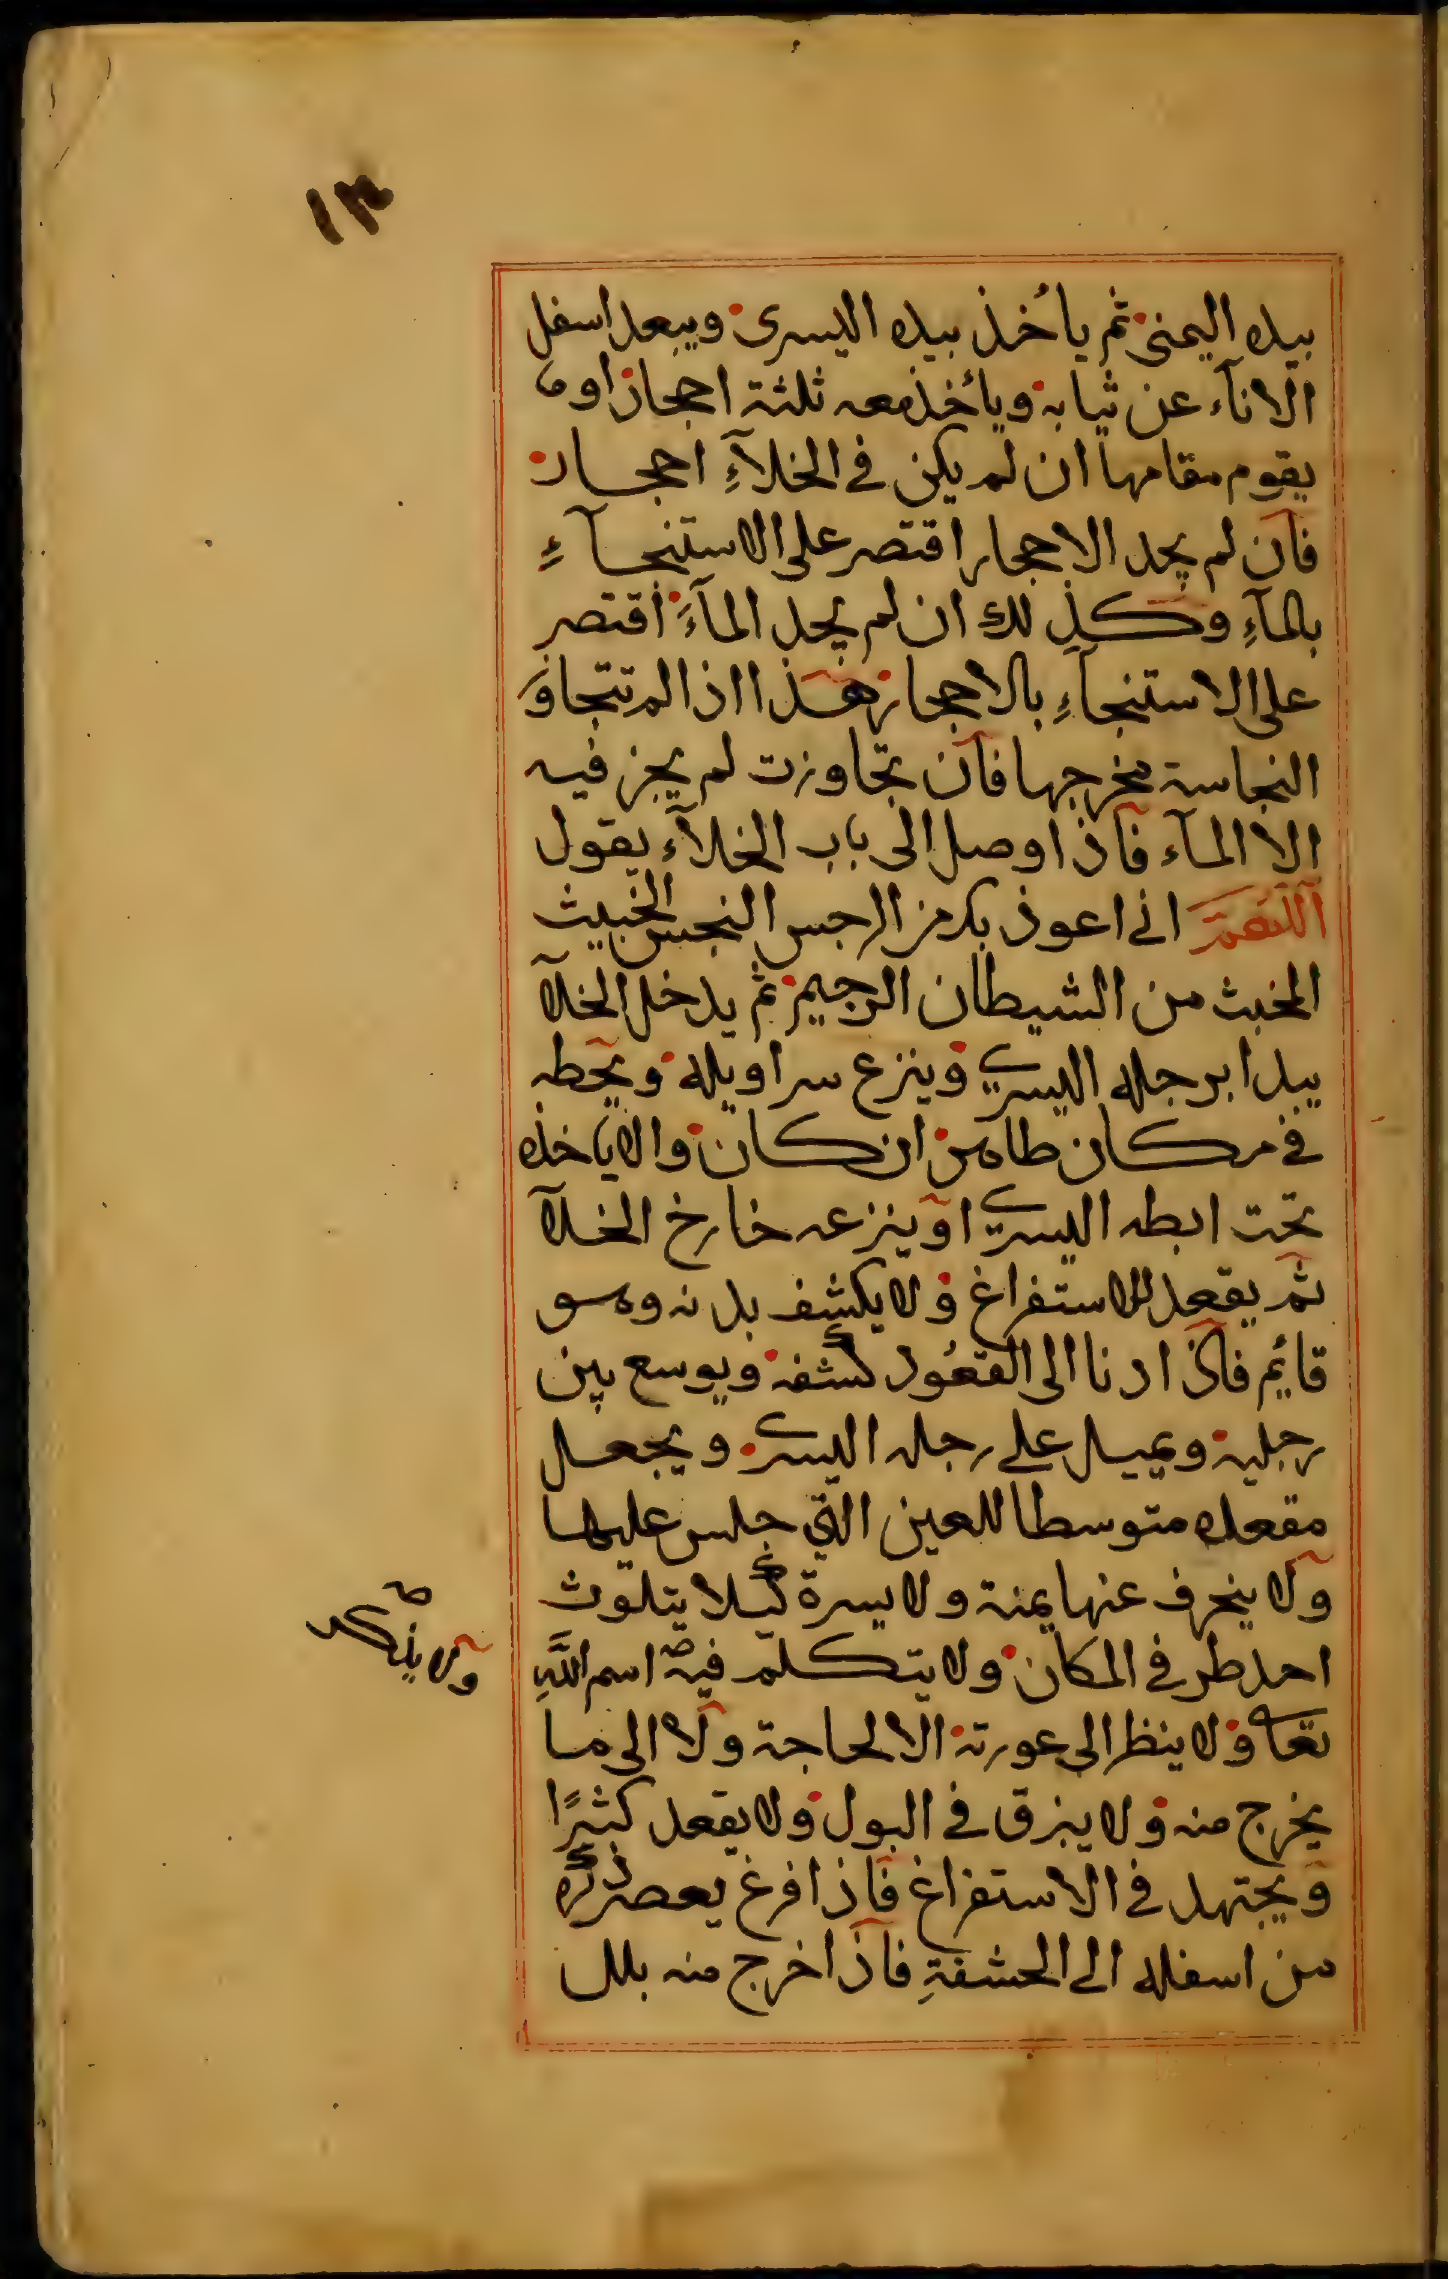 ١٣
بيده اليمنى ثم يأخذ بيده اليسرى ويبعد اسفل
الاناء عن ثيابه ويأخذ معه ثلثة احجار او ما
يقوم مقامها ان لم يكن في الخلآءِ احجار
فان لم يجد الاحجار اقتصر على الاستنجآءِ
بالمآءِ وكذلك ان لم يجد المآءَ اقتصر
على الاستنجآءِ بالاحجار هذا اذا لم تتجاوز
النجاسة مخرجها فان تجاوزت لم يجز فيه
الا المآء فاذا وصل الى باب الخلآء يقول
اللهم اني اعوذ بك من الرجس النجس الخبيث
المخبث من الشيطان الرجيم ثم يدخل الخلآ
يبدا برجله اليسرى وينزع سراويله ويحطه
في مكان طاهر ان كان والا ياخذه
تحت ابطه اليسرى او ينزعه خارج الخلآ
ثم يقعد للاستفراغ ولا يكشف بدنه وهو
قائم فاذا دنا الى القعُود كشفه ويوسع بين
رجليه ويميل على رجله اليسرى ويجعل
مقعده متوسطا للعين التي جلس عليها
ولا ينحرف عنها يمنة ولا يسرة كيلا يتلوث
احد طرفي المكان ولا يتكلم فيه اسم اللهِ
ولا يذكر
تعا ولا ينظر الى عورته الا لحاجة ولا الى ما
يخرج منه ولا يبزق في البول ولا يقعد كثيرًا
ويجتهد في الاستفراغ فاذا فرغ يعصر ذكره
من اسفله الى الحشفةِ فاذا خرج منه بلل